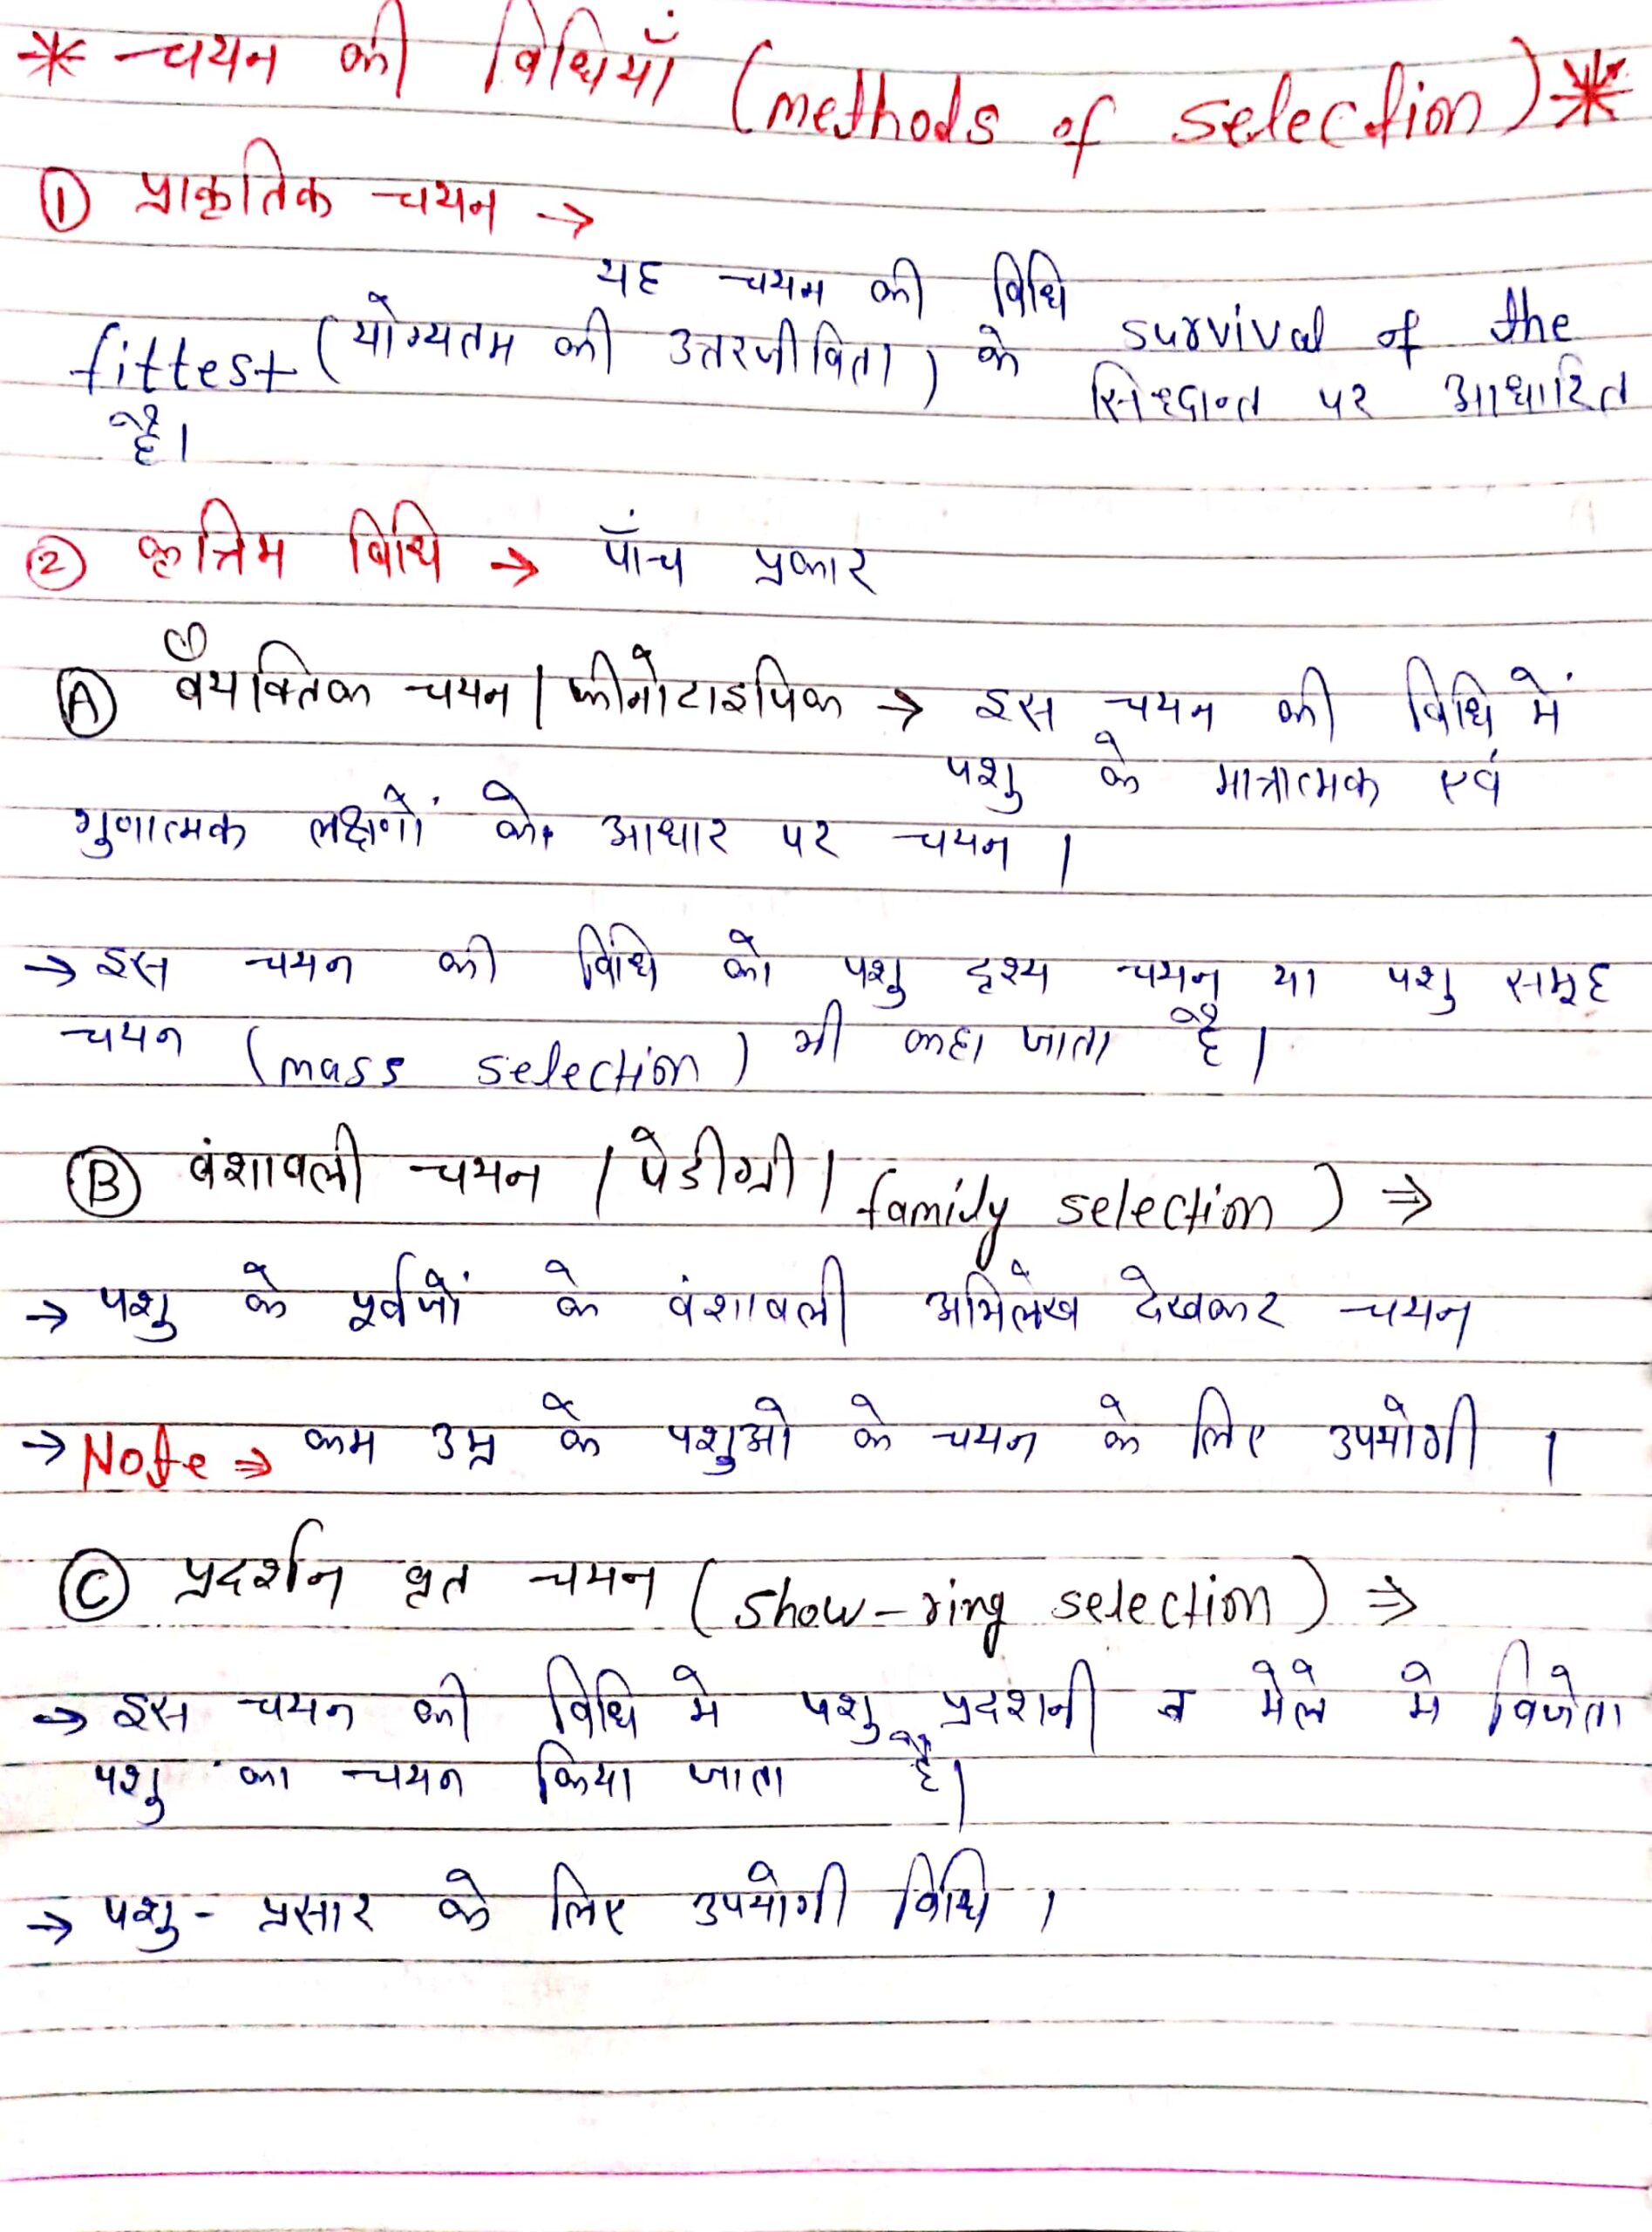 * चयन की विधियाँ (methods of selection) *
① प्राकृतिक चयन →
यह चयन की विधि survival of the
fittest (योग्यतम की उत्तरजीविता) के सिध्दान्त पर आधारित
है।
② कृत्रिम विधि → पाँच प्रकार
Ⓐ वैयक्तिक चयन / फीनोटाइपिक → इस चयन की विधि में
पशु के मात्रात्मक एवं
गुणात्मक लक्षणों के आधार पर चयन ।
→ इस चयन की विधि को पशु दृश्य चयन या पशु समूह
चयन (mass selection) भी कहा जाता है।
Ⓑ वंशावली चयन / पेडीग्री / family selection) ⇒
→ पशु के पूर्वजों के वंशावली अभिलेख देखकर चयन
→ Note ⇒ कम उम्र के पशुओ के चयन के लिए उपयोगी ।
Ⓒ प्रदर्शन वृत चयन (show-ring selection) ⇒
→ इस चयन की विधि मे पशु प्रदशनी व मेले मे विजेता
पशु का चयन किया जाता है।
→ पशु - प्रसार के लिए उपयोगी विधि ।